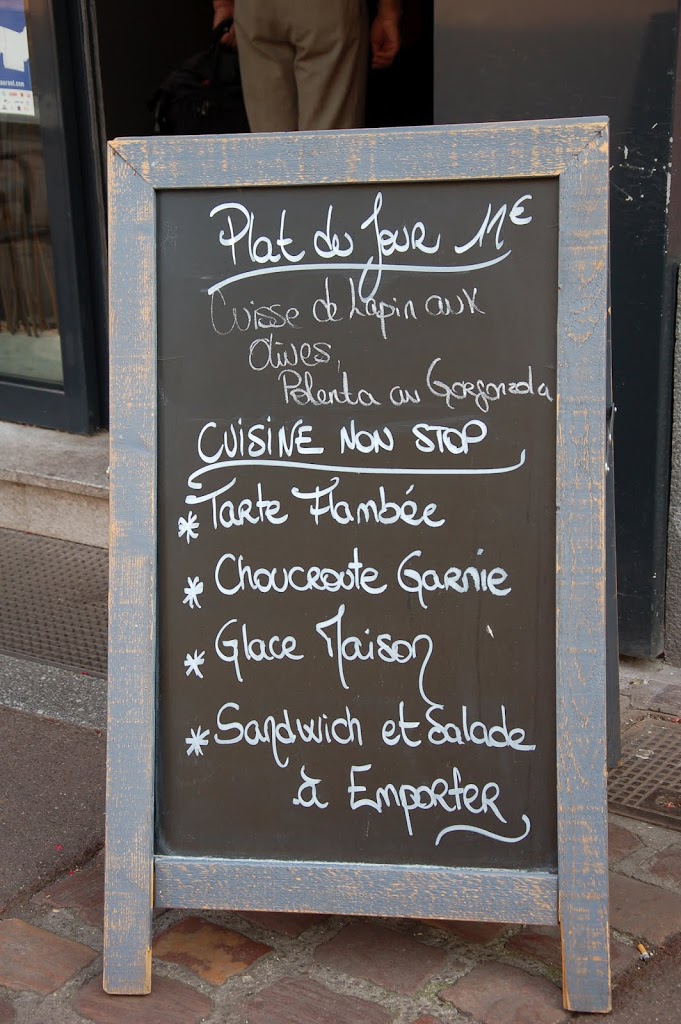 Plat du Jour 11€
Cuisse de Lapin aux
Olives,
Polenta au Gorgonzola
CUISINE NON STOP
* Tarte Flambée
* Choucroute Garnie
* Glace Maison
* Sandwich et Salade
à Emporter